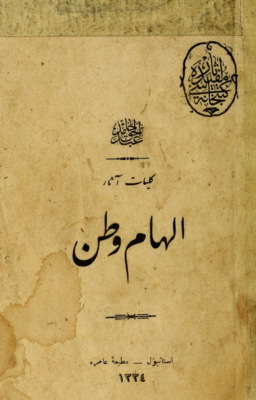 عبدالحق حامد
كليات آثار
الهام وطن
استانبول — مطبعهٔ عامره
١٣٣٤